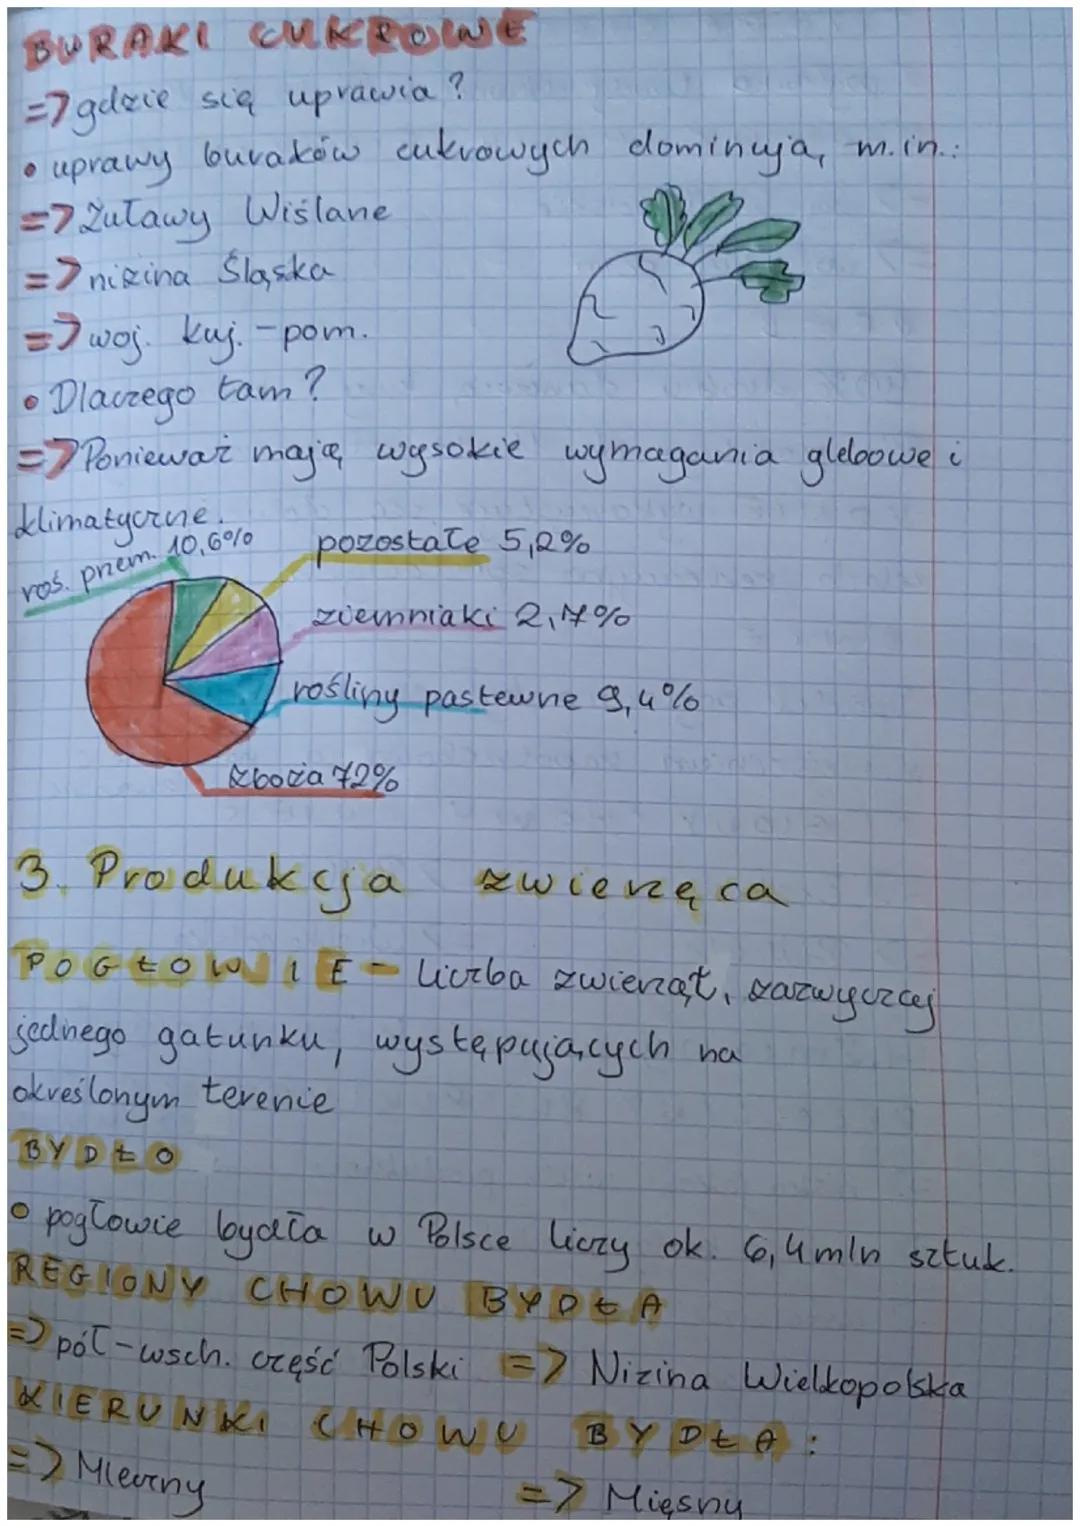 BURAKI CUKROWE
=> gdzie się uprawia?
• uprawy buraków cukrowych dominują, m.in.:
=> Żuławy Wiślane
=> nizina Śląska
=> woj. kuj.-pom.
• Dlaczego tam?
=> Ponieważ mają wysokie wymagania glebowe i
klimatyczne.
roś. przem. 10,6%
pozostałe 5,2%
ziemniaki 2,7%
rośliny pastewne 9,4%
zboża 72%
3. Produkcja zwierzęca
POGŁOWIE - liczba zwierząt, zazwyczaj
jednego gatunku, występujących na
określonym terenie
BYDŁO
• pogłowie bydła w Polsce liczy ok. 6,4 mln sztuk.
REGIONY CHOWU BYDŁA
=> płn-wsch. część Polski => Nizina Wielkopolska
KIERUNKI CHOWU BYDŁA:
=> Mleczny => Mięsny